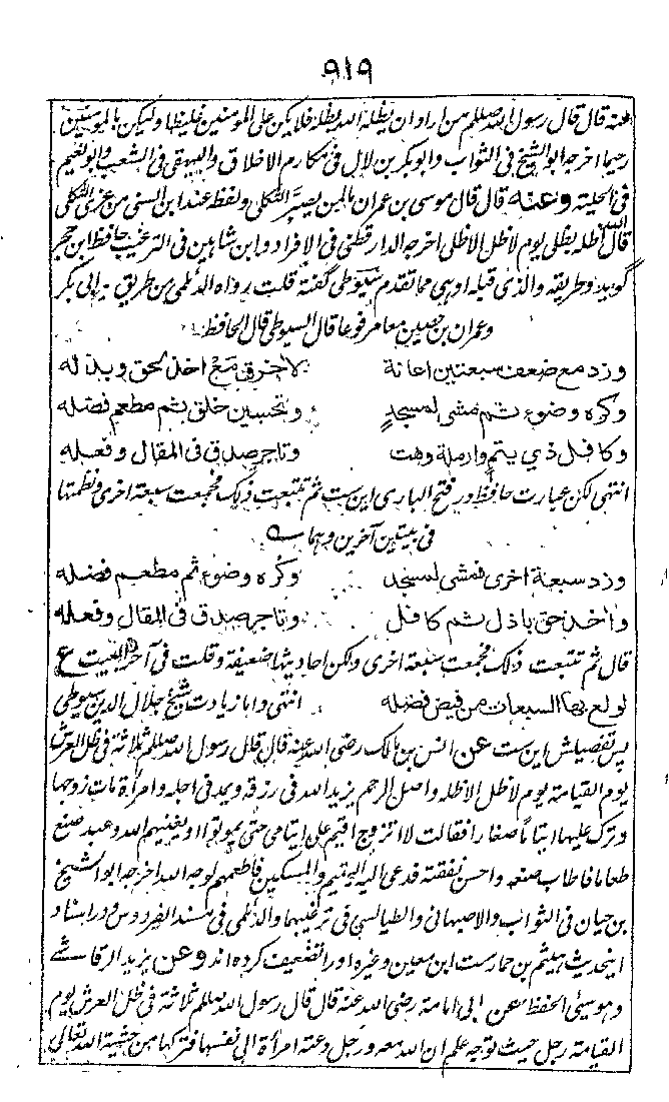 ٩١٩
عنه قال قال رسول الله صللم من اراد ان يظله الله بظله فلا يكن على المؤمنين غليظا وليكن بالمؤمنين
رحيما اخرجه ابو الشيخ فى الثواب وابو بكر بن لال فى مكارم الاخلاق والبيهقى فى الشعب وابو نعيم
فى الحلية وعنه قال قال موسى بن عمران يصبر الثكلى ولفظ عند ابن السنى من عزى الثكلى
قال اظله بظلى يوم لا ظل الا ظلى اخرجه الدارقطنى فى الافراد وابن شاهين فى الترغيب حافظ ابن حجر
گويد وطريقه والذى قبله اوهى مما تقدم سيوطى گفته قلت رواه الديلمى من طريق ابى بكر
وعمران بن حصين معا مرفوعا قال السيوطى قال الحافظ
وزد مع ضعف سبعتين اعانة لاخرق مع اخذ لحق وبذله
وكره وضوء ثم مشى لمسجد وتحسين خلق ثم مطعم فضله
وكافل ذي يتم وارملة وهت وتاجر صدق فى المقال وفعله
انتهى لكن عبارت حافظ در فتح البارى اين ست ثم تتبعت ذلك فجمعت سبعة اخرى ونظمتها
فى بيتين آخرين وهما
وزد سبعة اخرى فمشى لمسجد وكره وضوء ثم مطعم فضله
واخذ حق باذل ثم كافل وتاجر صدق فى المقال وفعله
قال ثم تتبعت ذلك فجمعت سبعة اخرى ولكن احاديثها ضعيفة وقلت فى آخر البيت ع
السبعات من فيض فضله انتهى واما زيادت شيخ جلال الدين سيوطى
پس تفصيلش اين ست عن انس بن مالك رضى الله عنه قال قال رسول الله صللم ثلاثة فى ظل العرش
يوم القيامة يوم لا ظل الا ظله واصل الرحم يزيد الله فى رزقه ويمد فى اجله وامرأة مات زوجها
وترك عليها ايتاما صغارا فقالت لا اتزوج اقيم على ايتامى حتى يموتوا او يغنيهم الله وعبد صنع
طعاما فاطاب صنعه واحسن نفقته فدعى اليه اليتيم والمسكين فاطعمهم لوجه الله اخرجه ابو الشيخ
بن حيان فى الثواب والاصبهانى والطيالسى فى ترغيبهما والديلمى فى مسند الفردوس و در اسناد
اينحديث هيثم بن حماز ست ابن معين وغيره او را تضعيف كرده اند وعن يزيد الرقاشے
وهو سيئ الحفظ عن ابى امامة رضى الله عنه قال قال رسول الله صللم ثلاثة فى ظل العرش يوم
القيامة رجل حيث توجه علم ان الله معه ورجل دعته امرأة الى نفسها فتركها من خشية الله تعالى